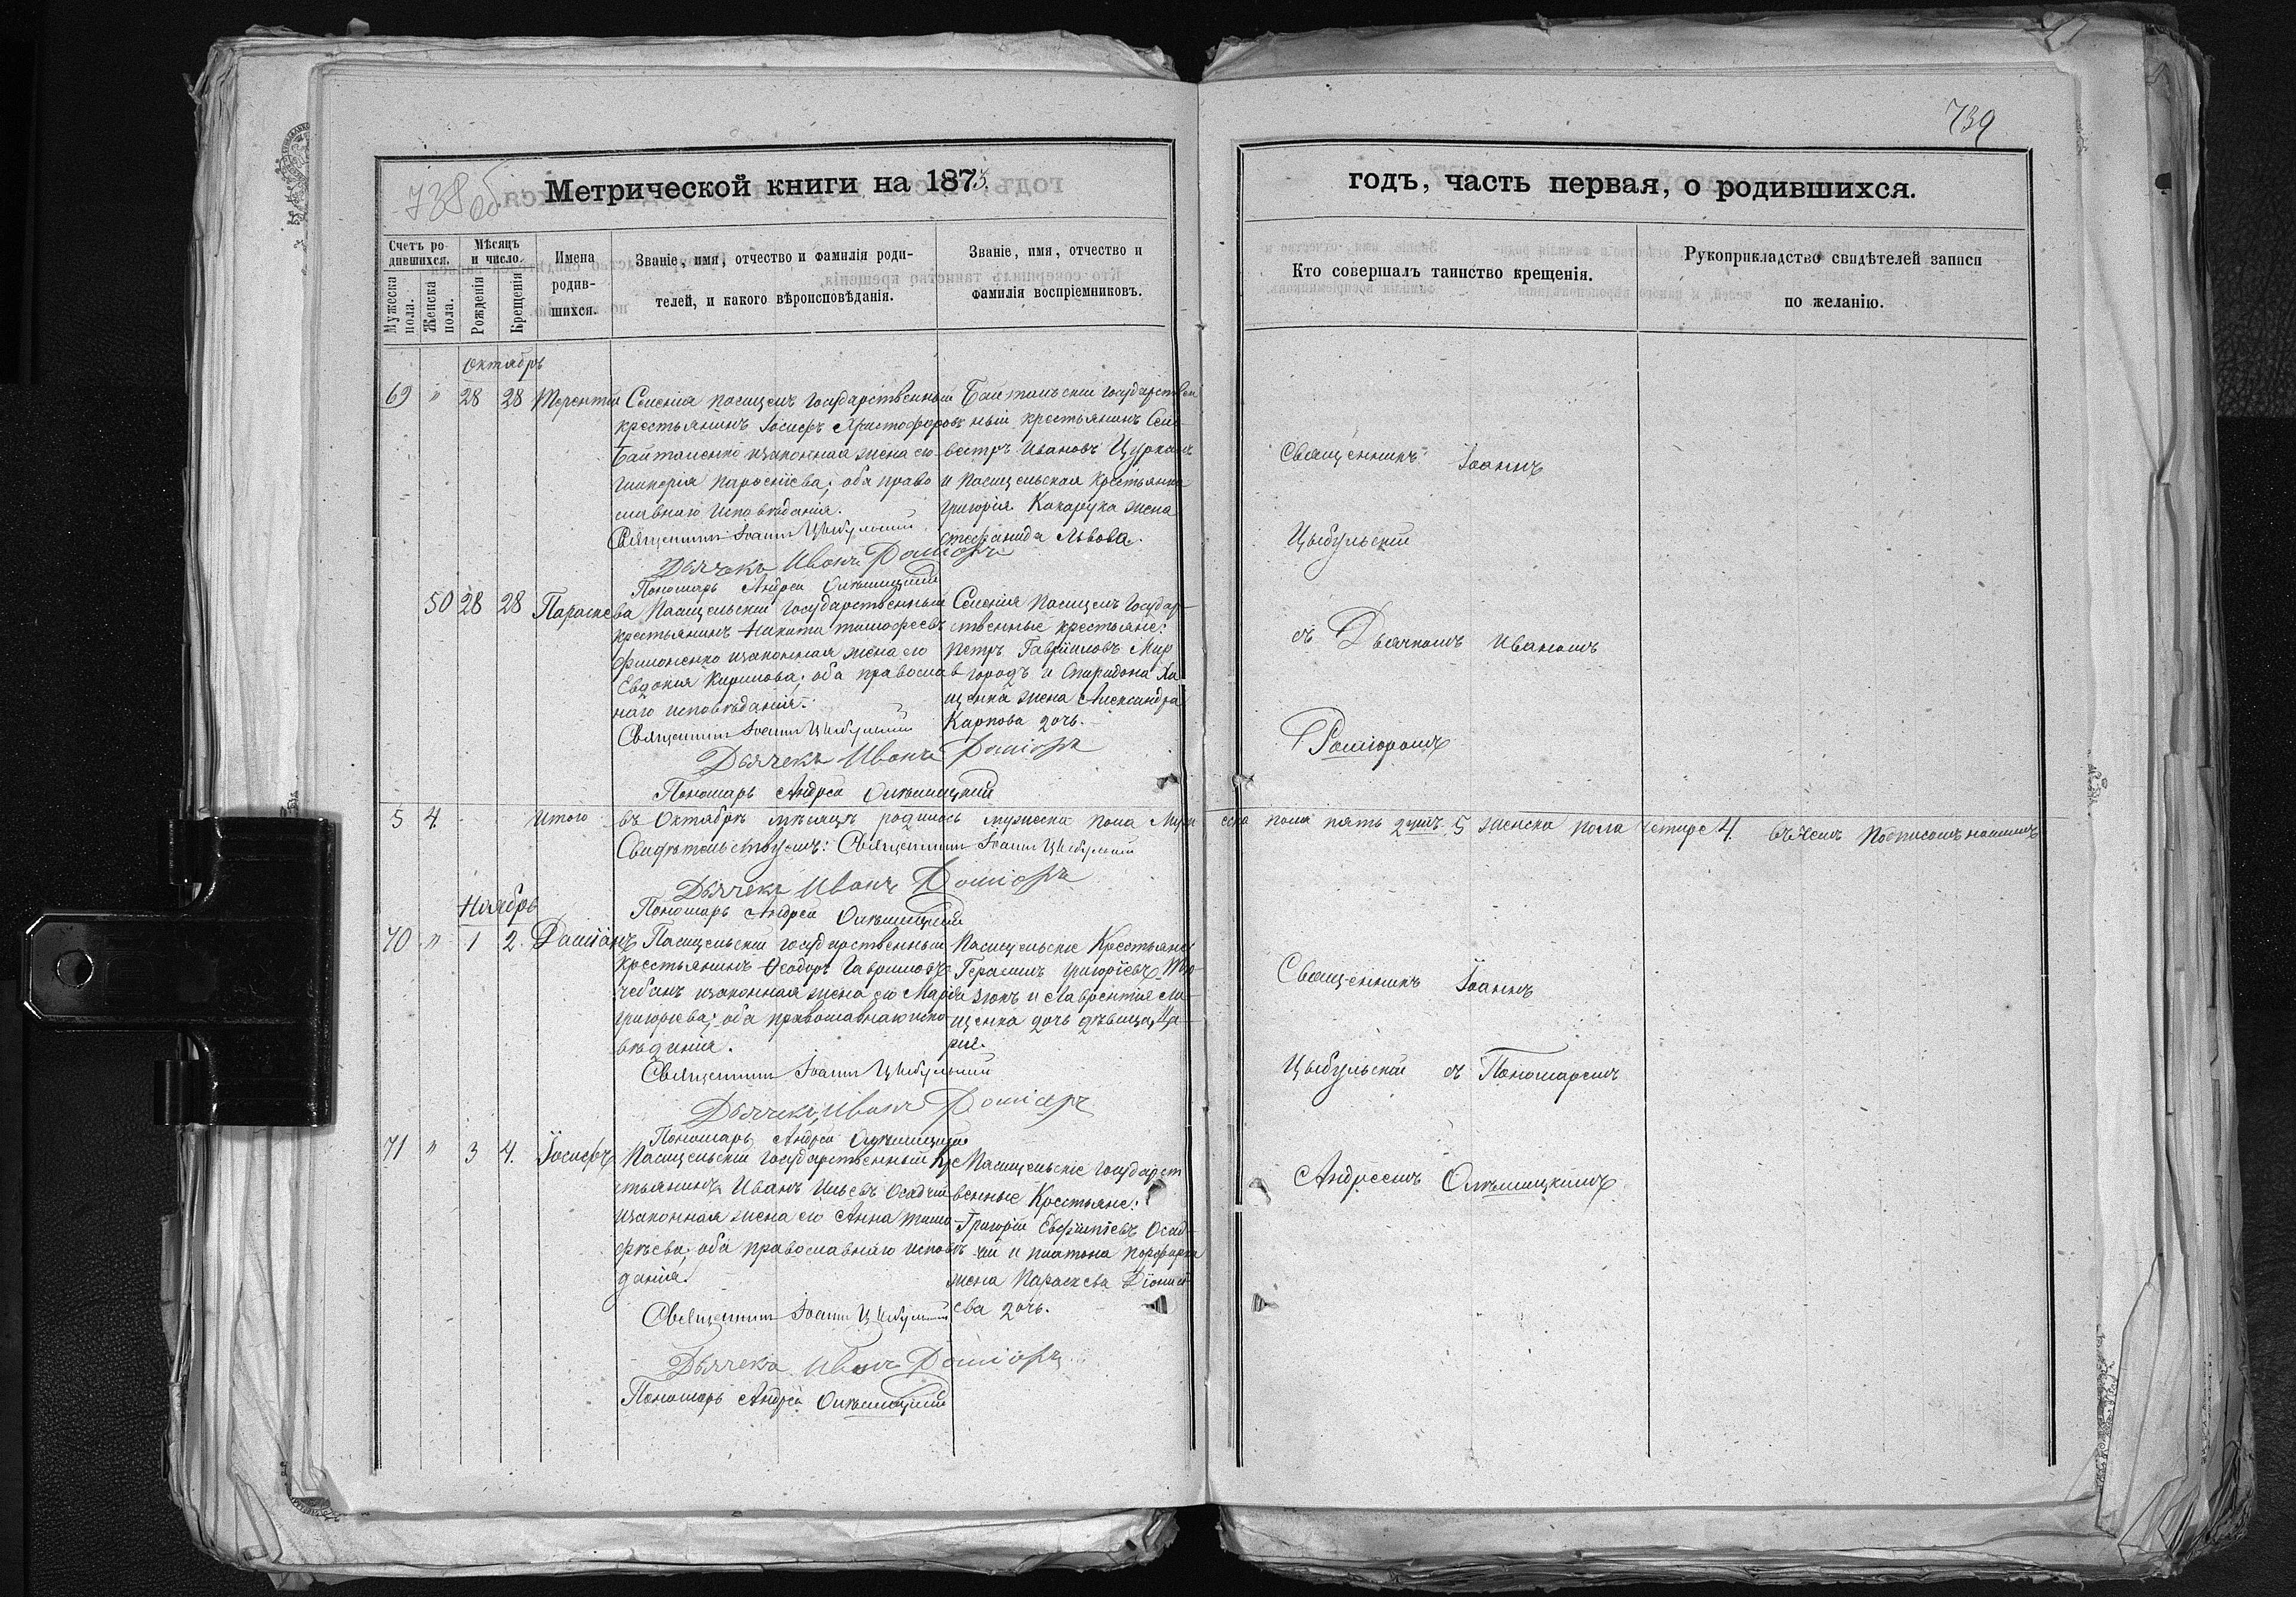 739
738 об
Метрической книги на 1873.
годъ, часть первая, о родившихся.
Счетъ родившихся.
Мужеска пола.
Женска пола.
Мѣсяцъ и число.
Рожденія
Крещенія
Имена родившихся.
Званіе, имя, отчество и фамилія родителей, и какого вѣроисповѣданія.
Званіе, имя, отчество и фамилія воспріемниковъ.
Кто совершалъ таинство крещенія.
Рукоприкладство свидѣтелей записи по желанію.
Октябрь
69 " 28 28 Терентій
Селенія Пасицелъ Государственный
крестьянинъ Іосифъ Христофоровъ
изаконная жена его
обѣ право
славнаго исповѣданія.
Священникъ Іоаннъ Цыбульскій
Дьячекъ Иванъ
Пономарь Андрей
Государствен
ный крестьянинъ Сели
вестръ Ивановъ Цурканъ
и Пасицельская крестьянка
Григорія жена
Стефанида Львова.
Священникъ Іоаннъ
Цыбульскій
съ Дьячкомъ Иваномъ
50 28 28 Параскева
Пасицельскій государственный
крестьянинъ Никита Тимофеевъ
изаконная жена его
Евдокія Кирилова; оба православ
наго исповѣданія.
Священникъ Іоаннъ Цыбульскій
Дьячекъ Иванъ
Пономарь Андрей
Селенія Пасицелъ Государ-
ственные крестьяне:
Петръ Гавриловъ Мир
городъ и Спиридона
щенка жена Александра
Карпова дочь.
5 4. Итого въ Октябрѣ мѣсяцѣ родилось мужеска пола пять душъ 5 женска пола четыре 4. въ чемъ подписомъ нашимъ
Свидѣтельствуемъ: Священникъ Іоаннъ Цыбульскій
Дьячекъ Иванъ
Пономарь Андрей
Ноябрь
70 " 1 2. Даміанъ
Пасицельскій государственный
крестьянинъ Ѳеодоръ Гавриловъ
изаконная жена его Марія
Григорьева; оба православнаго испо
вѣданія.
Священникъ Іоаннъ Цыбульскій
Дьячекъ Иванъ
Пономарь Андрей
Пасицельскіе Крестьяне
Герасимъ Григоріевъ
и Лаврентія
щенка дочь дѣвица
Священникъ Іоаннъ
Цыбульскій съ Пономаремъ
Андреемъ
71 " 3 4. Іосифъ
Пасицельскій государственный кре
стьянинъ Иванъ Ильевъ Осадчій
изаконная жена его Анна Тимо
фѣева, оба православнаго исповѣ
данія.
Священникъ Іоаннъ Цыбульскій
Дьячекъ Иванъ
Пономарь Андрей
Пасицельскіе государст
венные Крестьяне:
Григорій Осад
чій и Платона
жена Параскева Діонисі
ева дочь.